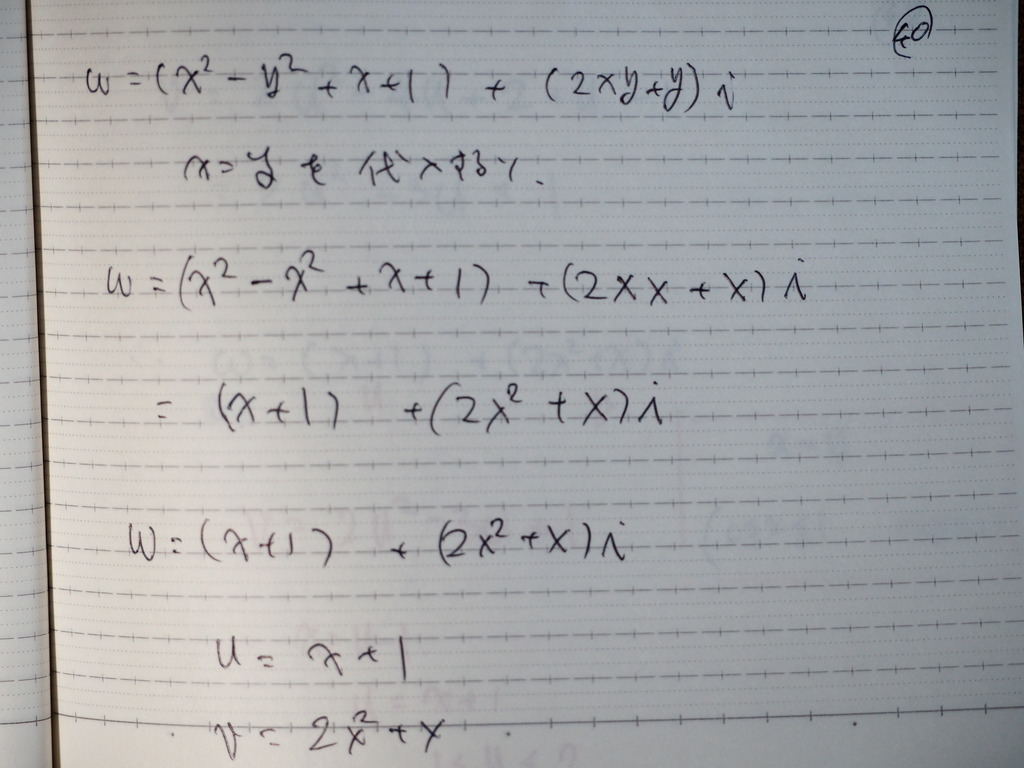 40
w = (x² - y² + x + 1) + (2xy + y) i
x = y を代入すると.
w = (x² - x² + x + 1) + (2xx + x) i
= (x + 1) + (2x² + x) i
w = (x + 1) + (2x² + x) i
u = x + 1
v = 2x² + x